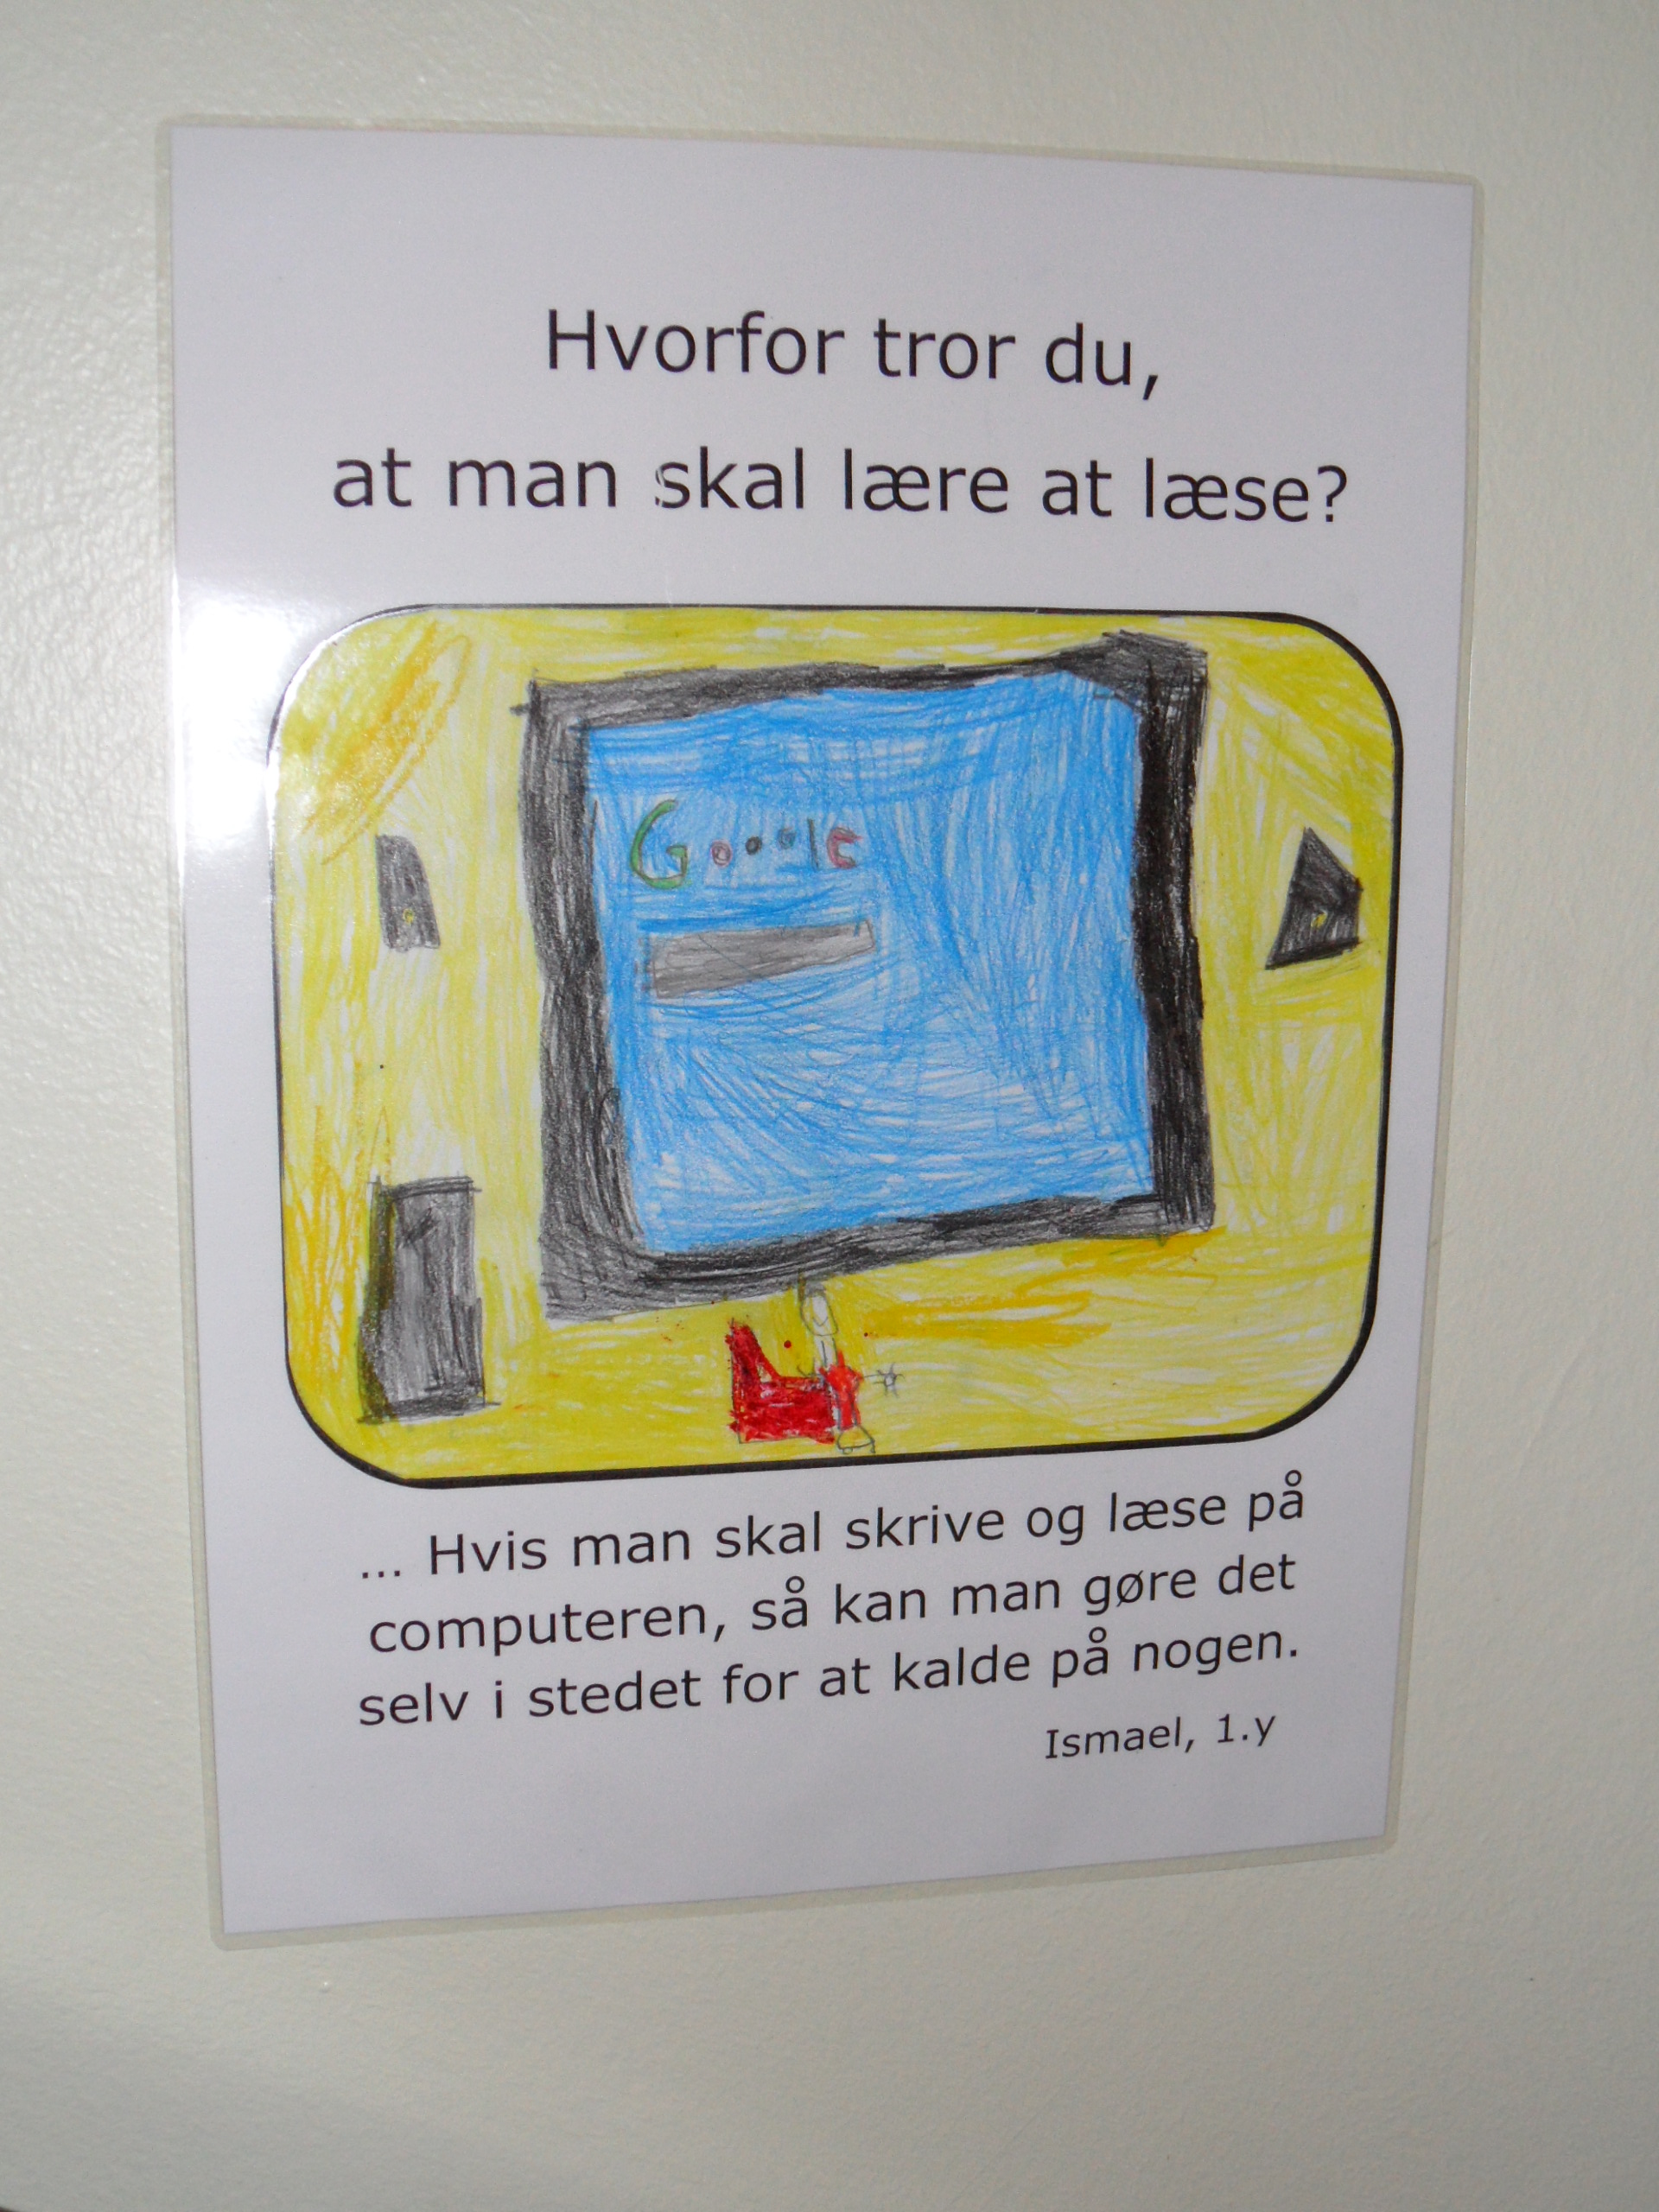 Hvorfor tror du,
at man skal lære at læse?
Gooole
... Hvis man skal skrive og læse på
computeren, så kan man gøre det
selv i stedet for at kalde på nogen.
Ismael, 1.y